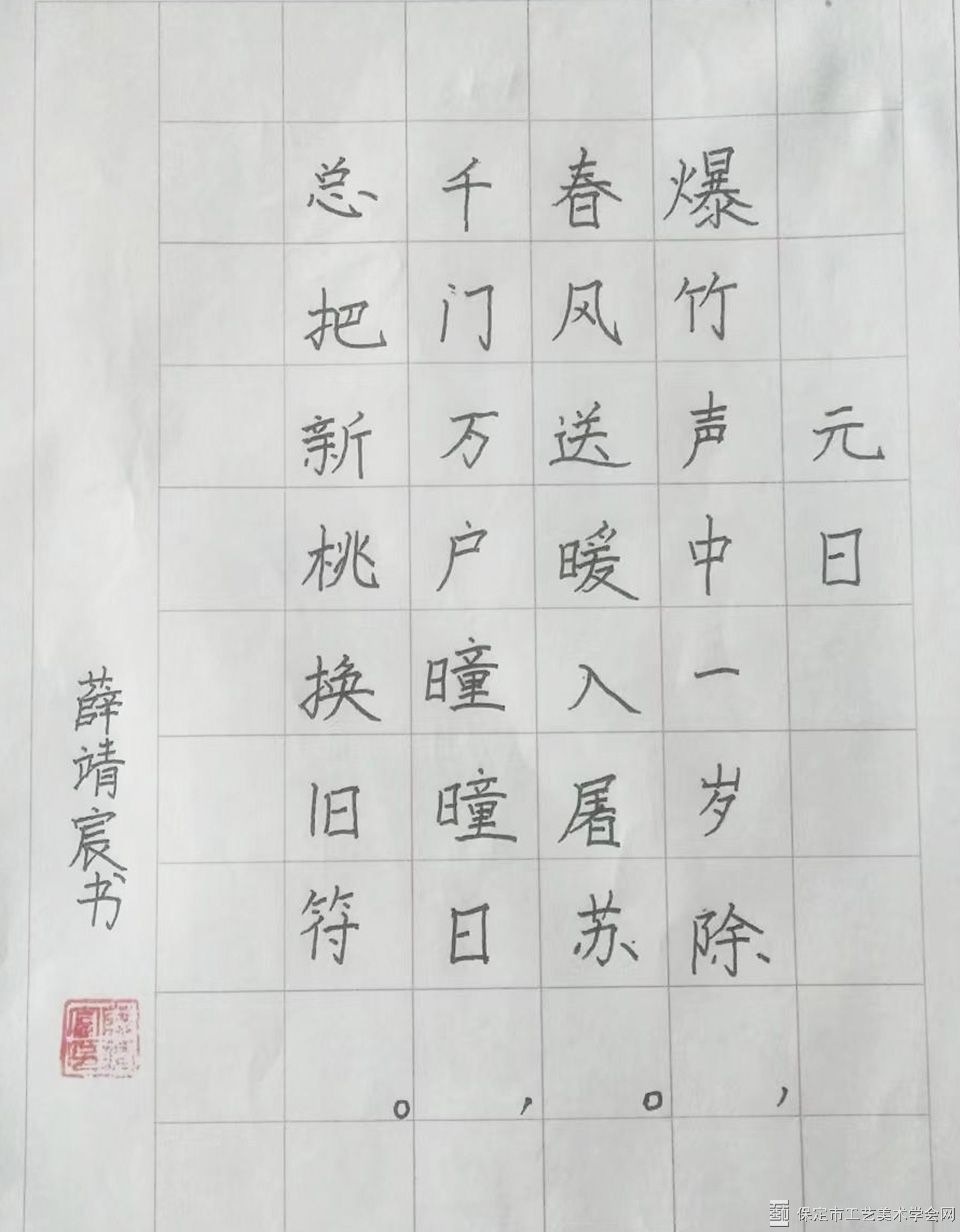 元日
爆竹声中一岁除，
春风送暖入屠苏。
千门万户曈曈日，
总把新桃换旧符。
薛靖宸书
保定市工艺美术学会网